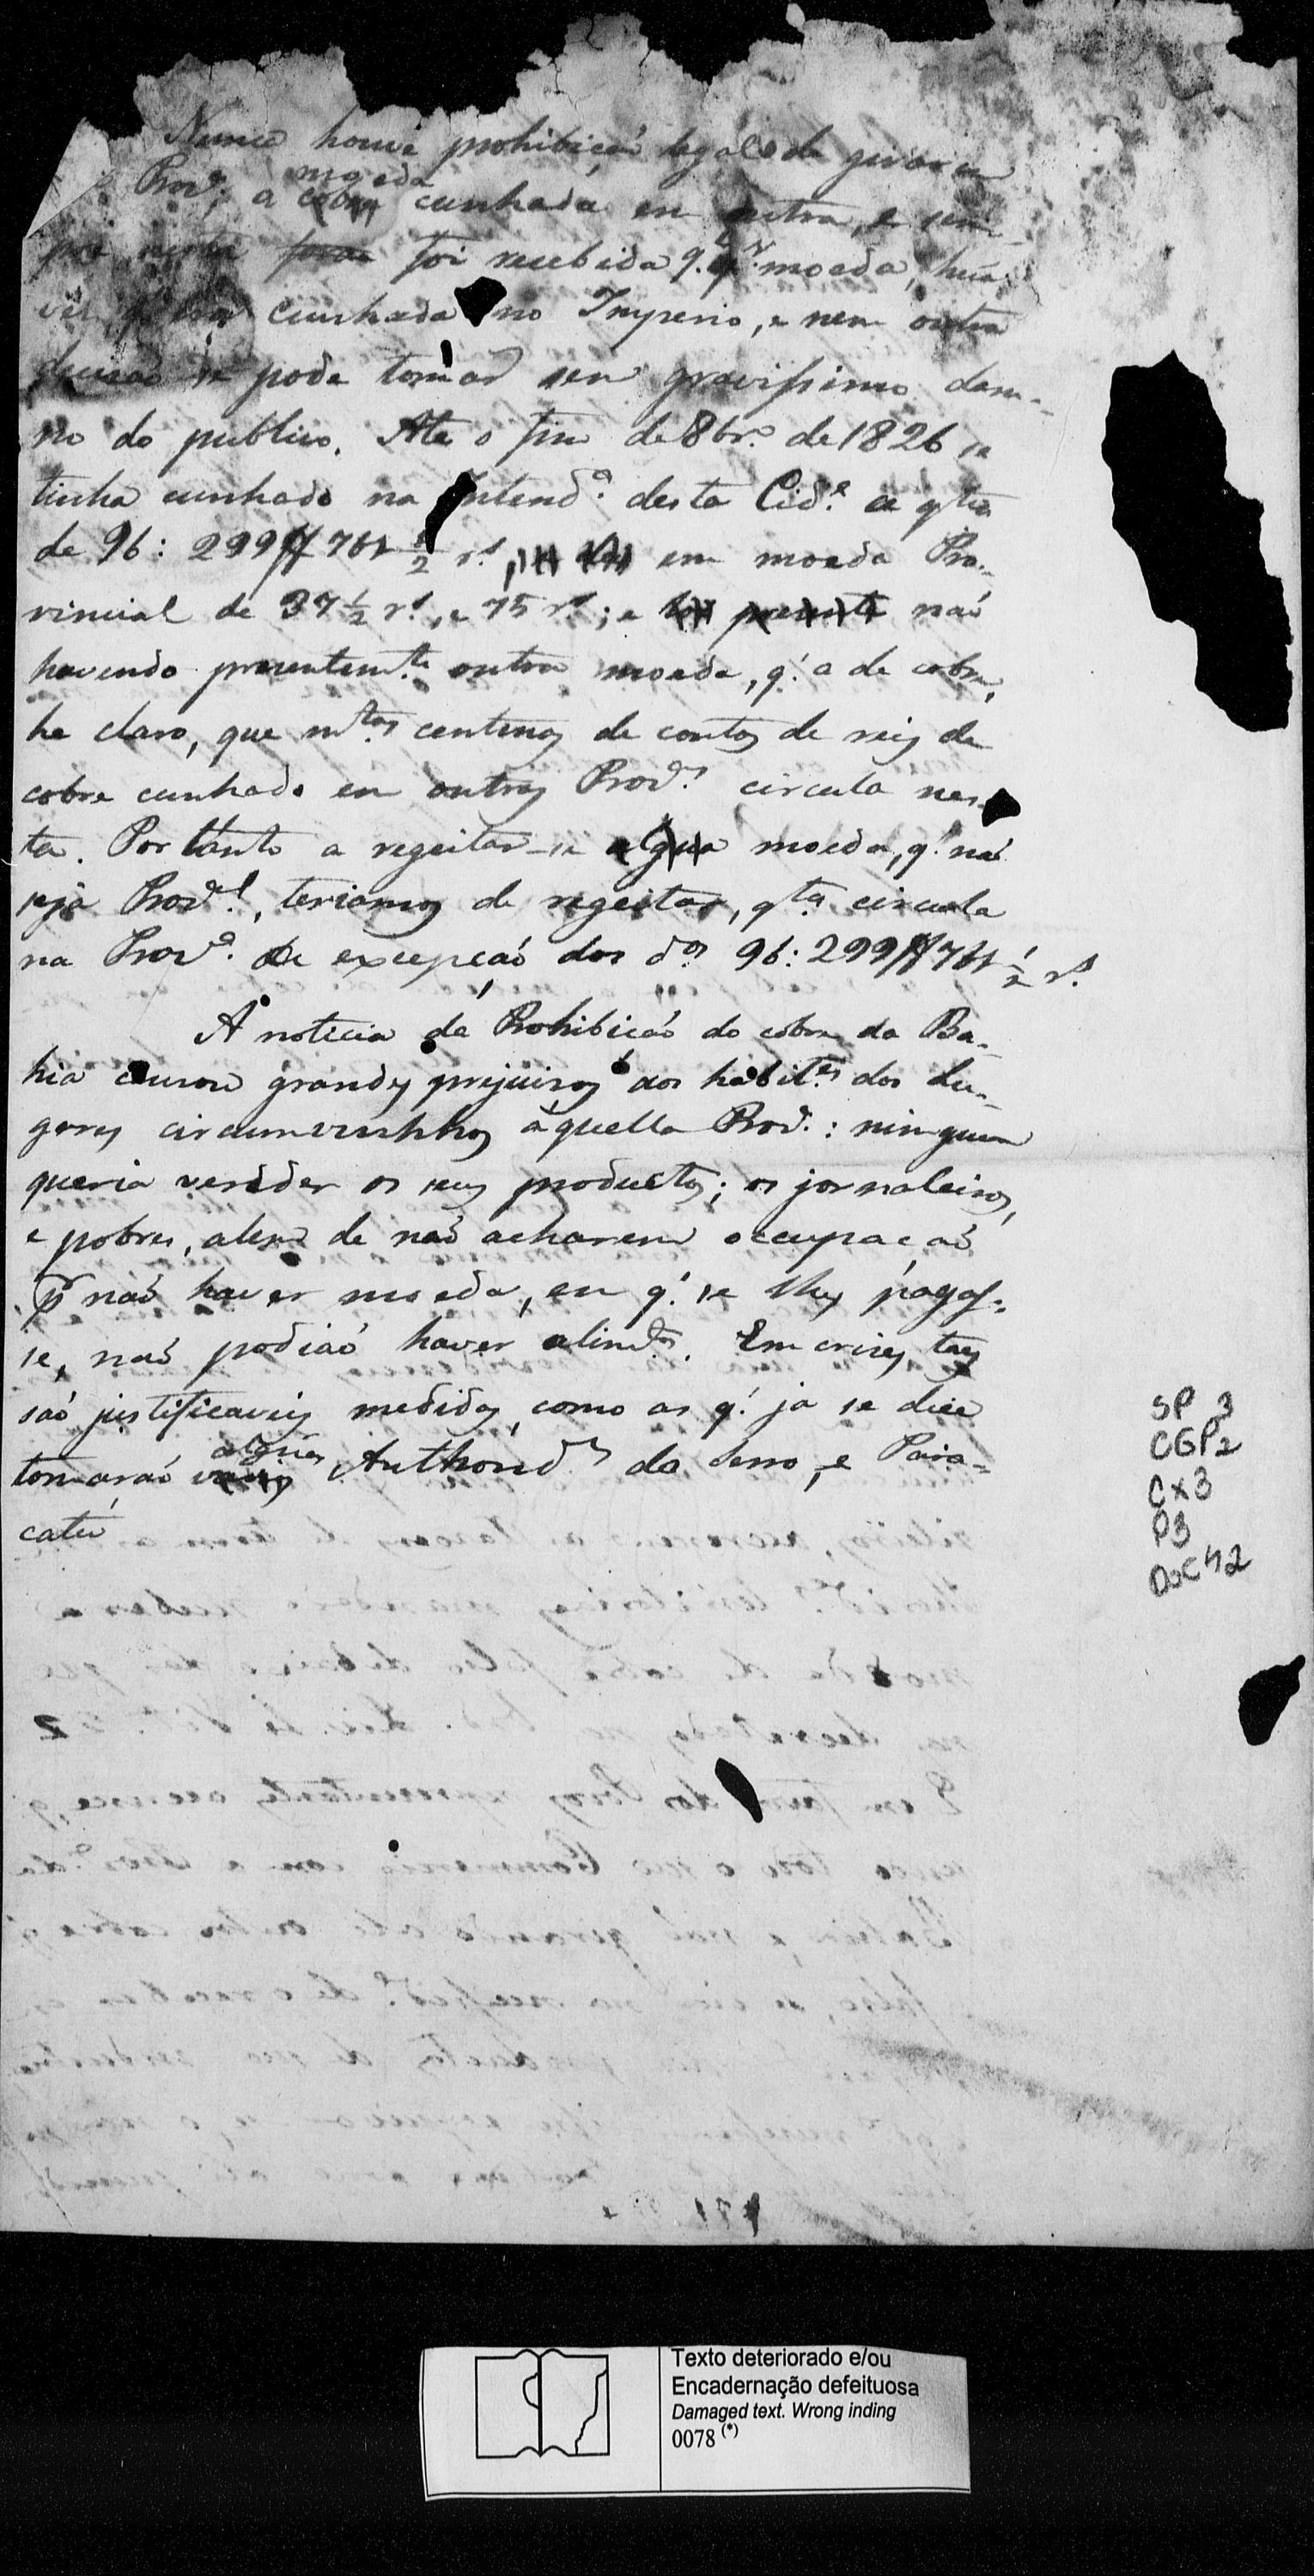 Nunca houve prohibição legal de girar em
Prov.ª, a moeda cunhada em outra, e sem-
pre nesta foi recebida q.q.r moeda, hũa
vez cunhada no Imperio, e nem outra
decisaõ se pode tomar sem gravissimo dam-
no do publico. Ate o fim de 8br.º de 1826 se
tinha cunhado na Intend.ª desta Cid.e a q.tia
de 96:299$761 1/2 r.s, em moeda Pro-
vincial de 37 1/2 r.s, e 75 r.s; e naõ
havendo presentem.te outra moeda, q.' a de cobre,
he claro, que m.tas centenas de contos de reis de
cobre cunhado em outras Prov.s circula nes-
ta. Portanto a regeitar-se moeda, q.' naõ
seja Prov.l, teriamos de regeitar, q.ta circula
na Prov.ª de excepçaõ dos d.os 96:299$761 1/2 r.s
A noticia da Prohibiçaõ do cobre da Ba-
hia causou grandes prejuizos aos habit.es dos Lu-
gares circumvisinhos àquella Prov.: ninguem
queria vender os seus productos; os jornaleiros,
e pobres, alem de naõ acharem occupaçaõ
p.r naõ haver moeda, em q.' se lhes pagas-
se, naõ podiaõ haver alim.tos. Em crises taes
saõ justificaveis medidas, como as q.' ja se dice
tomaraõ algũas Authorid.es do Serro, e Para-
catú
SP 3
CGP2
CX3
P3
Doc 42
Texto deteriorado e/ou
Encadernação defeituosa
Damaged text. Wrong inding
0078 (*)